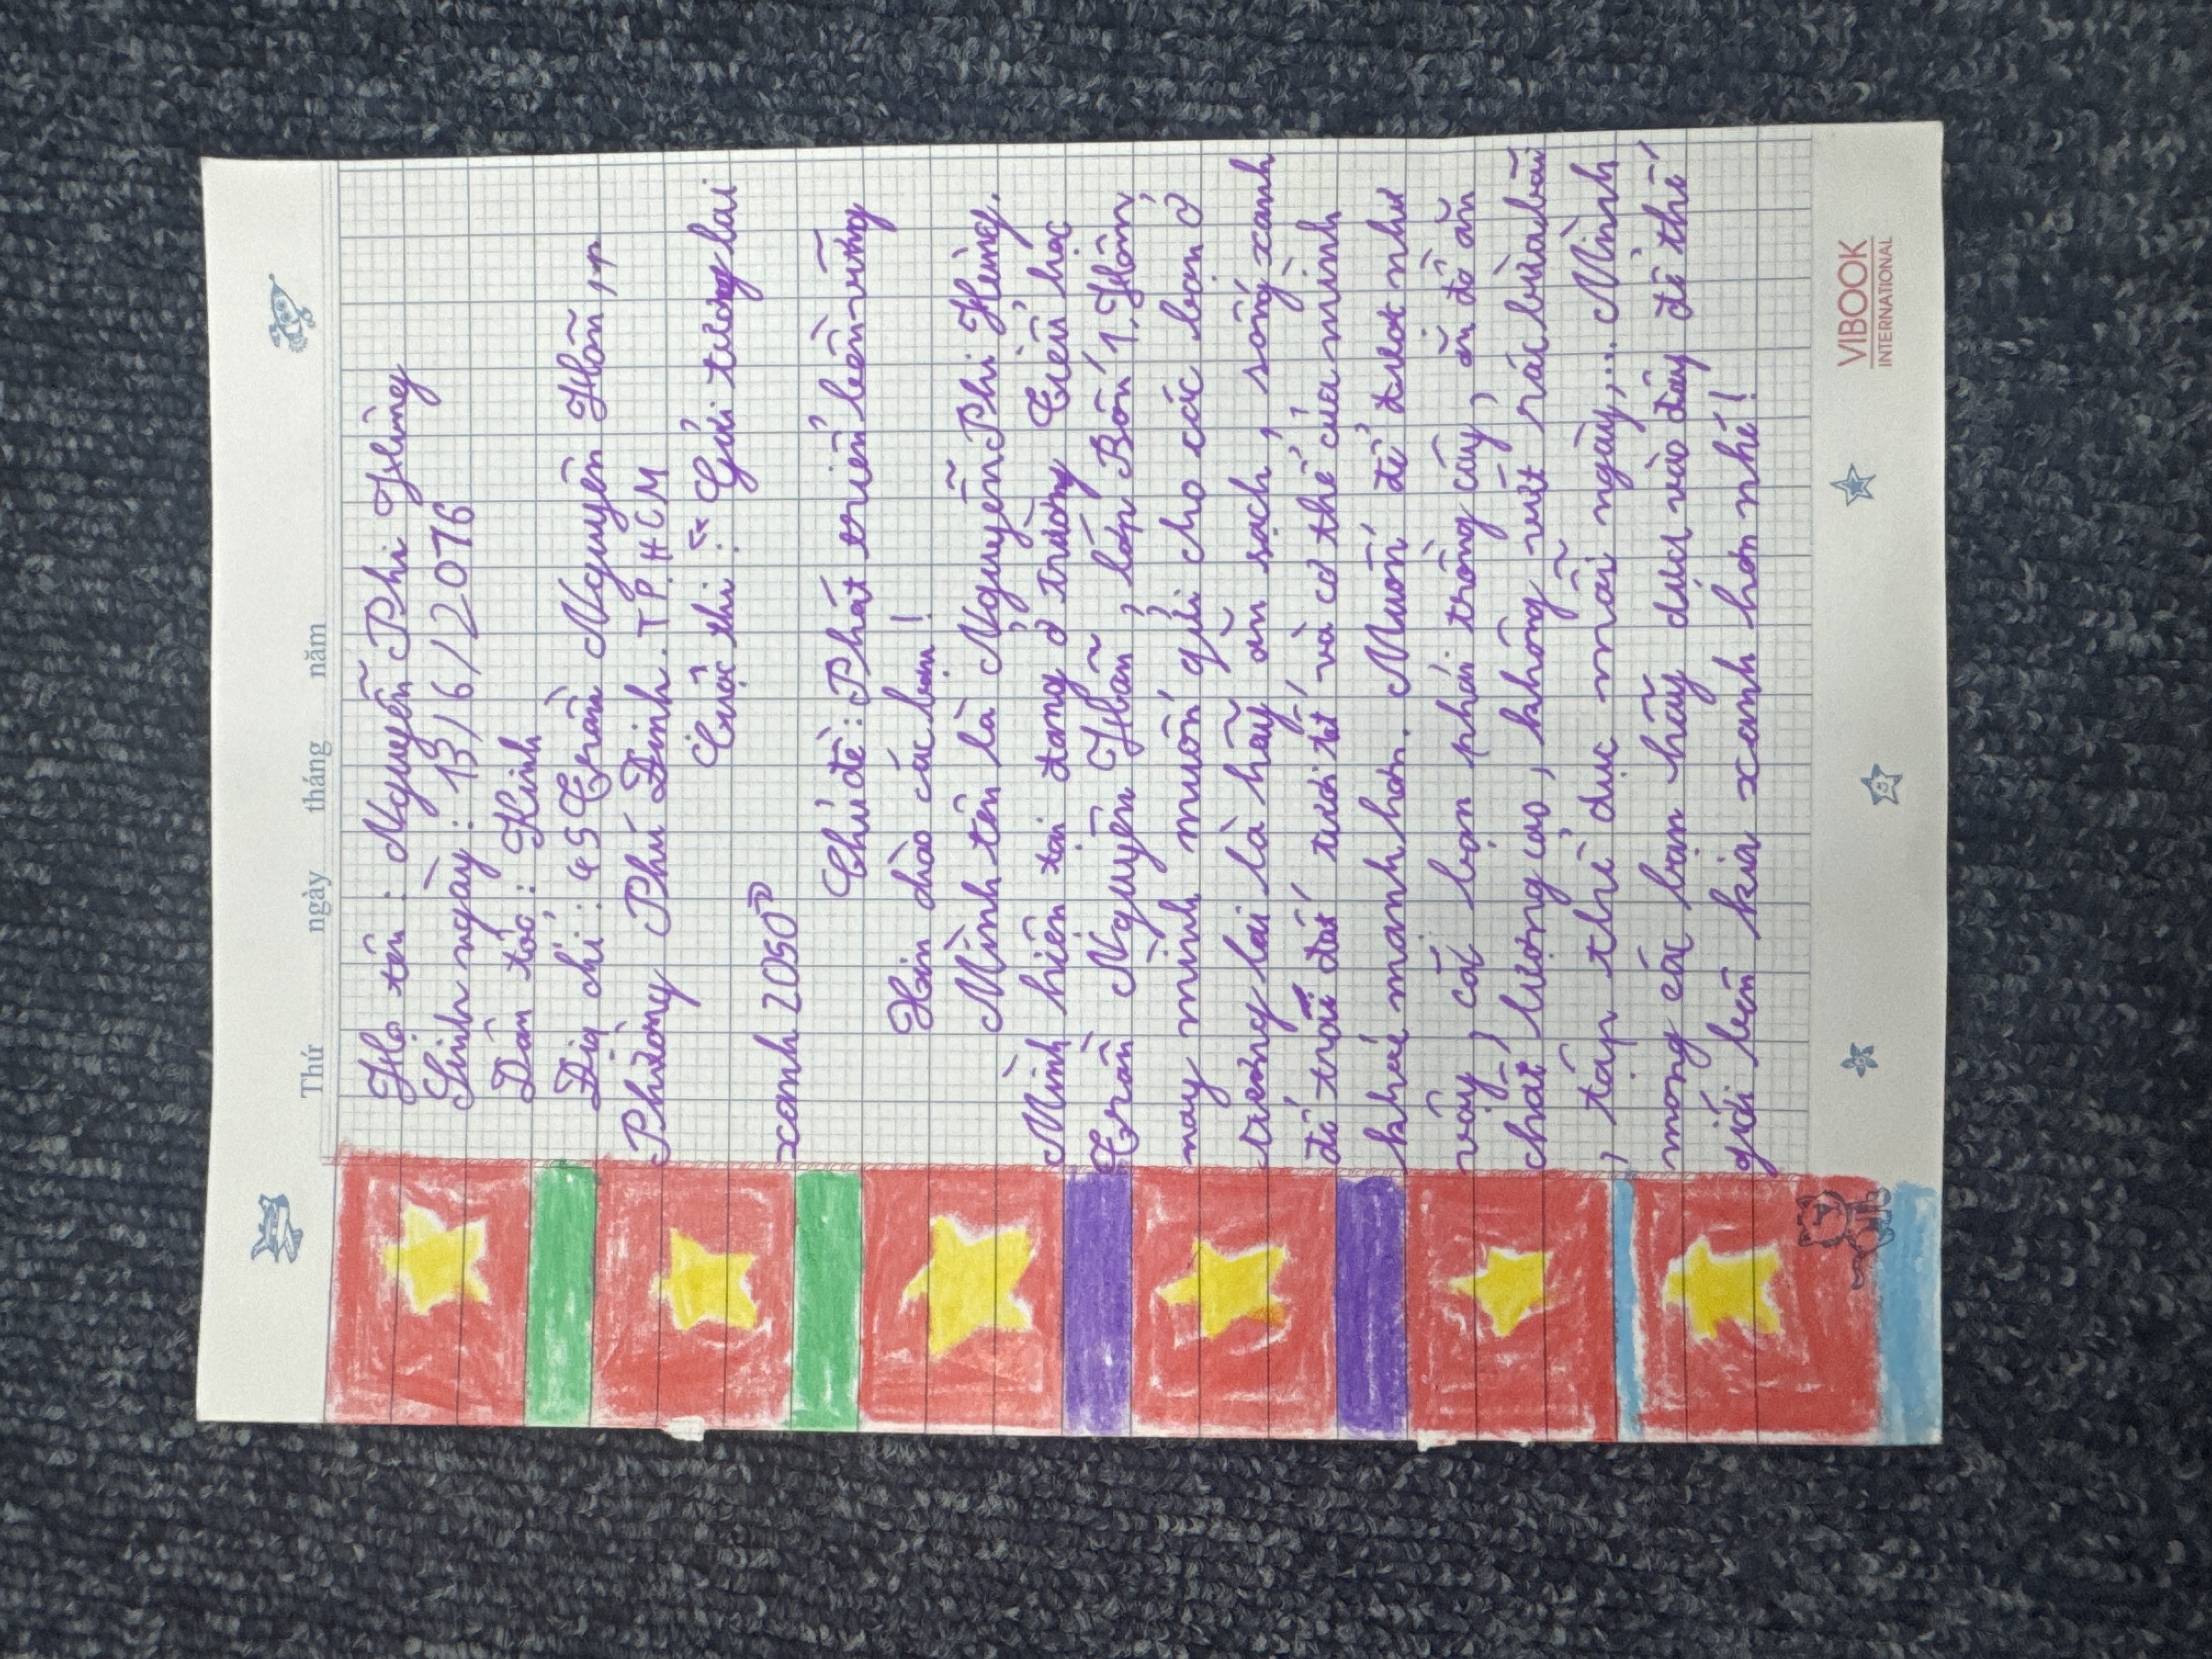 Thứ ngày tháng năm
Họ tên : Nguyễn Phi Hùng
Sinh ngày : 13/6/2016
Dân tộc : Kinh
Địa chỉ : 45 Trần Nguyên Hãn, p
Phường Phú Định. TP.HCM
Cuộc thi : “ Gửi tương lai
xanh 2050”
Chủ đề : Phát triển bền vững
Xin chào các bạn !
Mình tên là Nguyễn Phi Hùng.
Mình hiện tại đang ở trường Tiểu học
Trần Nguyên Hãn , lớp Bốn 1. Hôm
nay mình muốn gửi cho các bạn ở
tương lai là hãy ăn sạch , sống xanh
để trái đất tươi tốt và cơ thể của mình
khoẻ mạnh hơn. Muốn để được như
vậy , các bạn phải trồng cây , ăn đồ ăn
chất lượng cao , không vứt rác bừa bãi
, tập thể dục mỗi ngày,... Mình
mong các bạn hãy dựa vào đây để thế
giới bên kia xanh hơn nhé !
VIBOOK
INTERNATIONAL